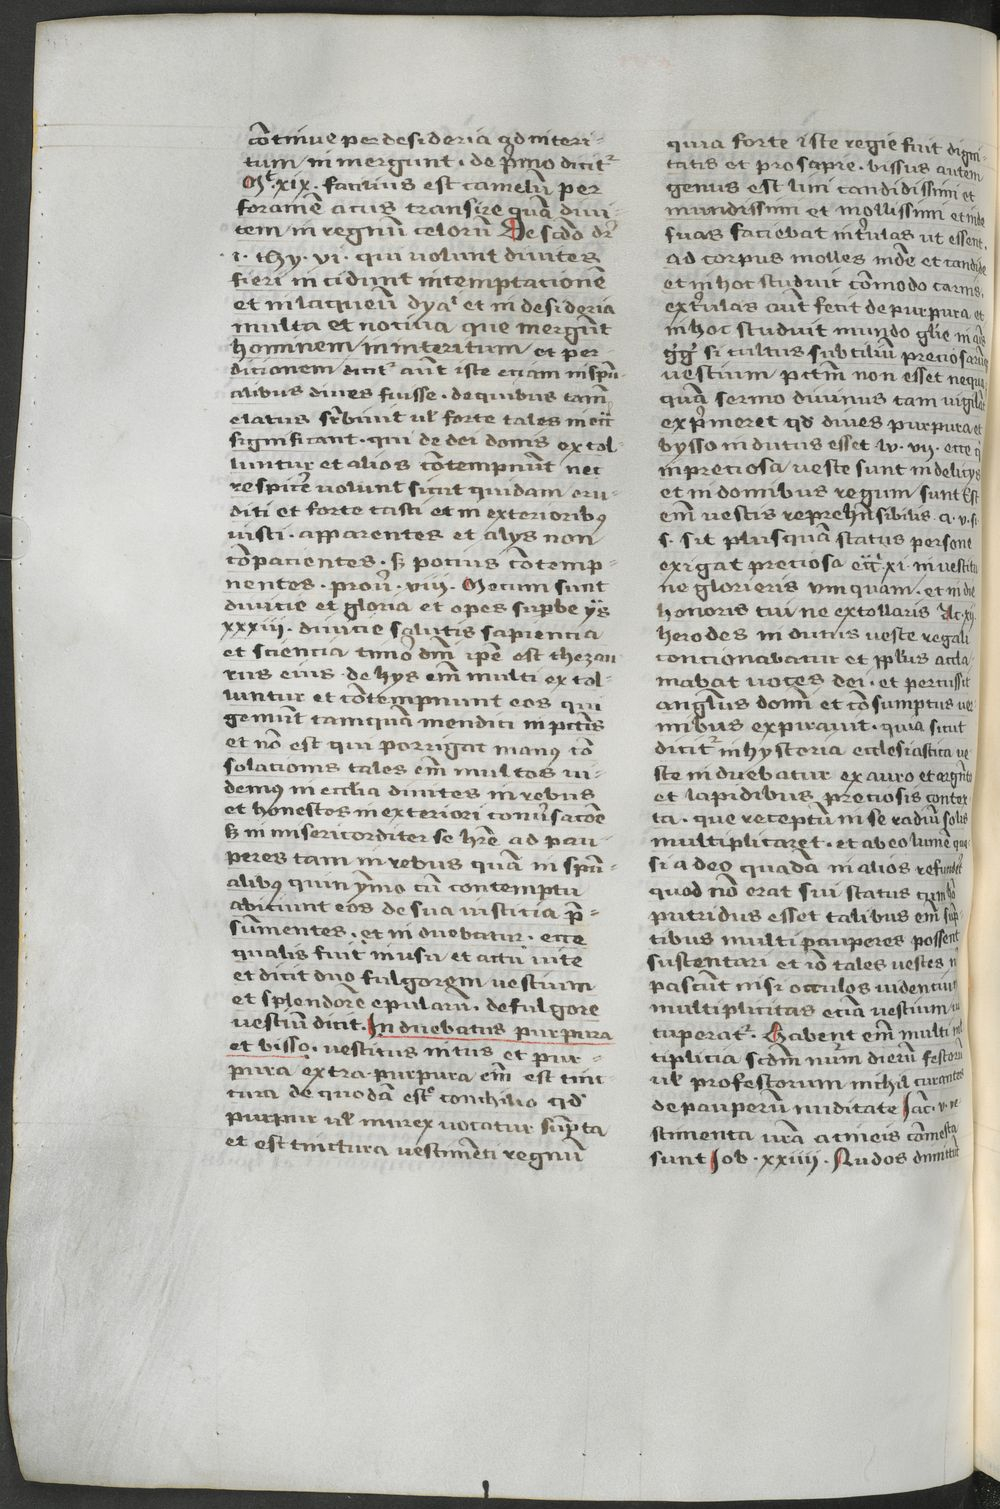 cōtinue per desideria ad interi-
tum inmergunt . de p̄mo dicitᷣ
Mͭ . xix . facilius est camelū per
foramē acus transire quā divi-
tem in regnū celorū De scd̄o dr̄
. i . thy . vi . qui volunt divites
fieri incidunt intemptacionē
et in laqueū dyaˡ et in desideria
multa et nociva que mergūt
hominem in interitum et per
dicionem dicitᷣ aūt iste eciam in spūa-
alibus dives fuisse . de quibus tam̄
elatus
significant . qui de dei donis extol-
luntur et alios cōtempnūt nec
respicēr volunt sicut quidam eru-
diti et forte casti et in exterioribꝯ
iusti . apparentes et alys non
cōpacientes . sꝫ pocius cōtemp-
nentes . prov̄ . viii . Mecum sunt
divicie et gloria et opes supbe ys
xxxiii . divicie salutis sapiencia
et sciencia timor dn̄i ipē est thezau
rus eius . de hys em̄ multi extol-
luntur et cōtempnunt eos qui
gemūt tamquā mendici in pctīs
et nō est qui porrigat manus cō
solacionis tales em̄ multos vi-
demus in ecclīa divites in rebus
et honestos in exteriori conv̄sacōe
sꝫ in misericorditer se hr̄e ad pau-
peres tam in rebus quā in spūa-
alibꝯ quin ymo cū contemptu
abiciunt eos de sua iusticia p̄-
sūmentes . et induebatur . ecce
qualis fuit in usu et actu vite
et dicit duo fulgorem vestium
et splendorē epularū . de fulgore
vestiū dicit . Induebatus purpura
et bisso . vestitus intus et pur-
pura extra . purpura em̄ est tinc-
tura de quodā est conchilio qd̓
purpur vł murex vocatur sūpta
et est tinctura vestimēti regnū
quia forte iste regie fuit digni-
tatis et prosapie . bissus autem
genus est lini candidissimi et
mundissimi et mollissimi et inde
suas faciebat int̓ulas ut essent .
ad corpus molles inde et candide
et in hoc studuit cōmodo carnis .
ext̓ulas aūt fecit de purpura et
in hoc studuit mundo glīe
gg̓ si cultus subtiliū
vestium pctm̄ non esset nequa
quā sermo divinus tam vigilāt
exp̓meret qd̓ dives purpura et
bysso indutus esset lv . vii . ecce q̓
in preciosa veste sunt in delicys
et in domibus regum sunt Est
em̄ vestis reprehn̄sibilis
s . sit plusquā status persone
exigat preciosa ecc̄ . xi . in vestitu
ne glorieris umquam . et in die
honoris tui ne extollaris Ac . xii
herodes indutus veste regali
concionabatur et pplus accla
mabat voces dei . et percussit
angl̄us domī et cōsumptus ver
mibus expiravit . quia sicut
dicitᷣ in hystoria ecclesiastica ve
ste induebatur ex auro et argēto
et lapidibus preciosis contex
ta . que receptū in se radiū solis
multiplicaret . et ab eo lumē qua
si a deo quadā in alios refunderet
quod nō erat sui status cum
putridus esset talibus em̄
tibus multi pauperes possent
sustentari et iō tales vestes nō
pascūt nisi occulos videntium
multiplicitas eciā vestium vi
tuperatᷣ . Habent em̄ multi mul
tiplicia scdm̄ nūm dierū festorū
vł profestorum nichil curantes
de pauperū nuditate Iāc . v . ve
stimenta vrā a tineis cōmesta
sunt Iob . xxiiii . Nudos dimittūt